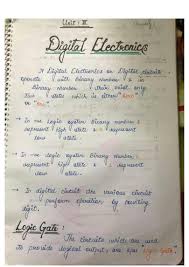 Unit: III
Digital Electronics
A Digital Electronics or Digital circuit
operate with binary number & in
binary number their exist only
two state which is either "Zero"
or "one"
→ In +ve logic system binary number 1
represent high state & 0 represent
low state.
→ In -ve logic system binary number 0
represent high state & 1 represent
low state.
→ In digital circuit the various circuit
perform operation by
digit.
Logic Gate:
The circuits which are used
to provide digital output, are
"Logic Gate"